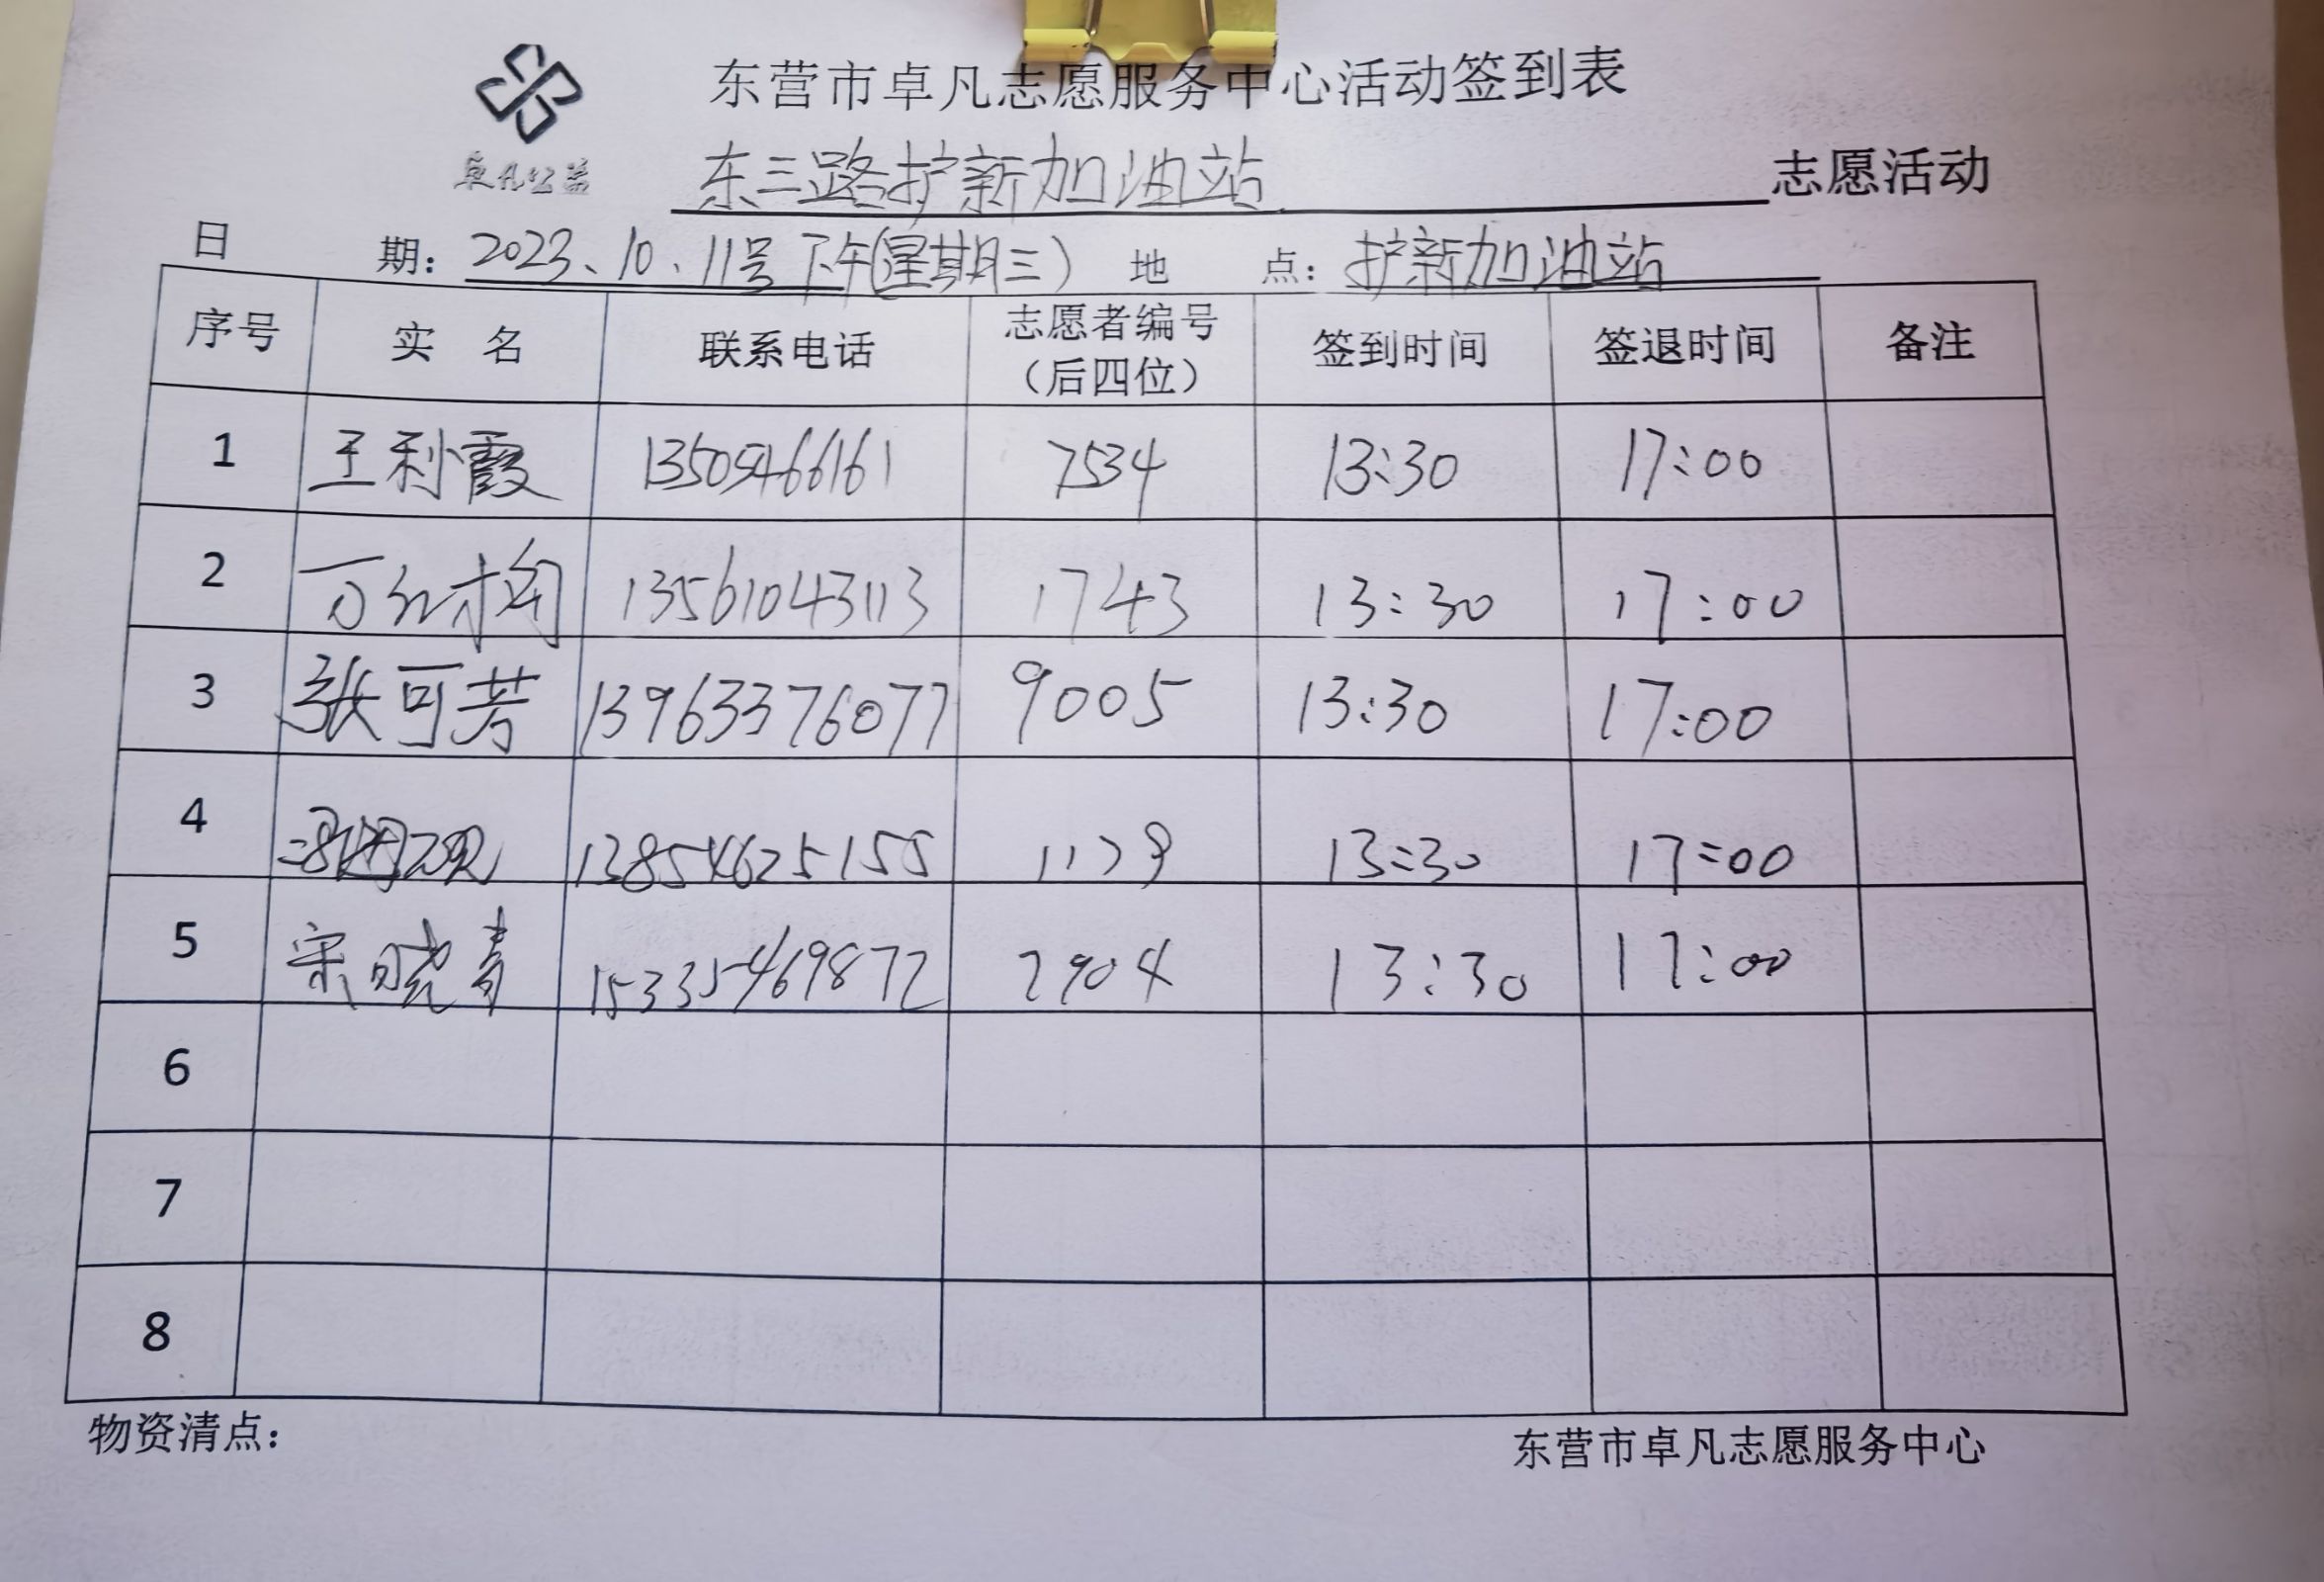 东营市卓凡志愿服务中心活动签到表
卓凡公益
东三路护新加油站 志愿活动
日 期：2023、10、11号下午(星期三) 地 点：护新加油站
序号 实 名 联系电话 志愿者编号（后四位） 签到时间 签退时间 备注
1 王利霞 13505466161 7534 13:30 17:00
2 万红梅 13561043113 1743 13:30 17:00
3 张可芳 13963376077 9005 13:30 17:00
4 13854625155 13:30 17:00
5 宋晓青 15335469872 2904 13:30 17:00
6
7
8
物资清点： 东营市卓凡志愿服务中心